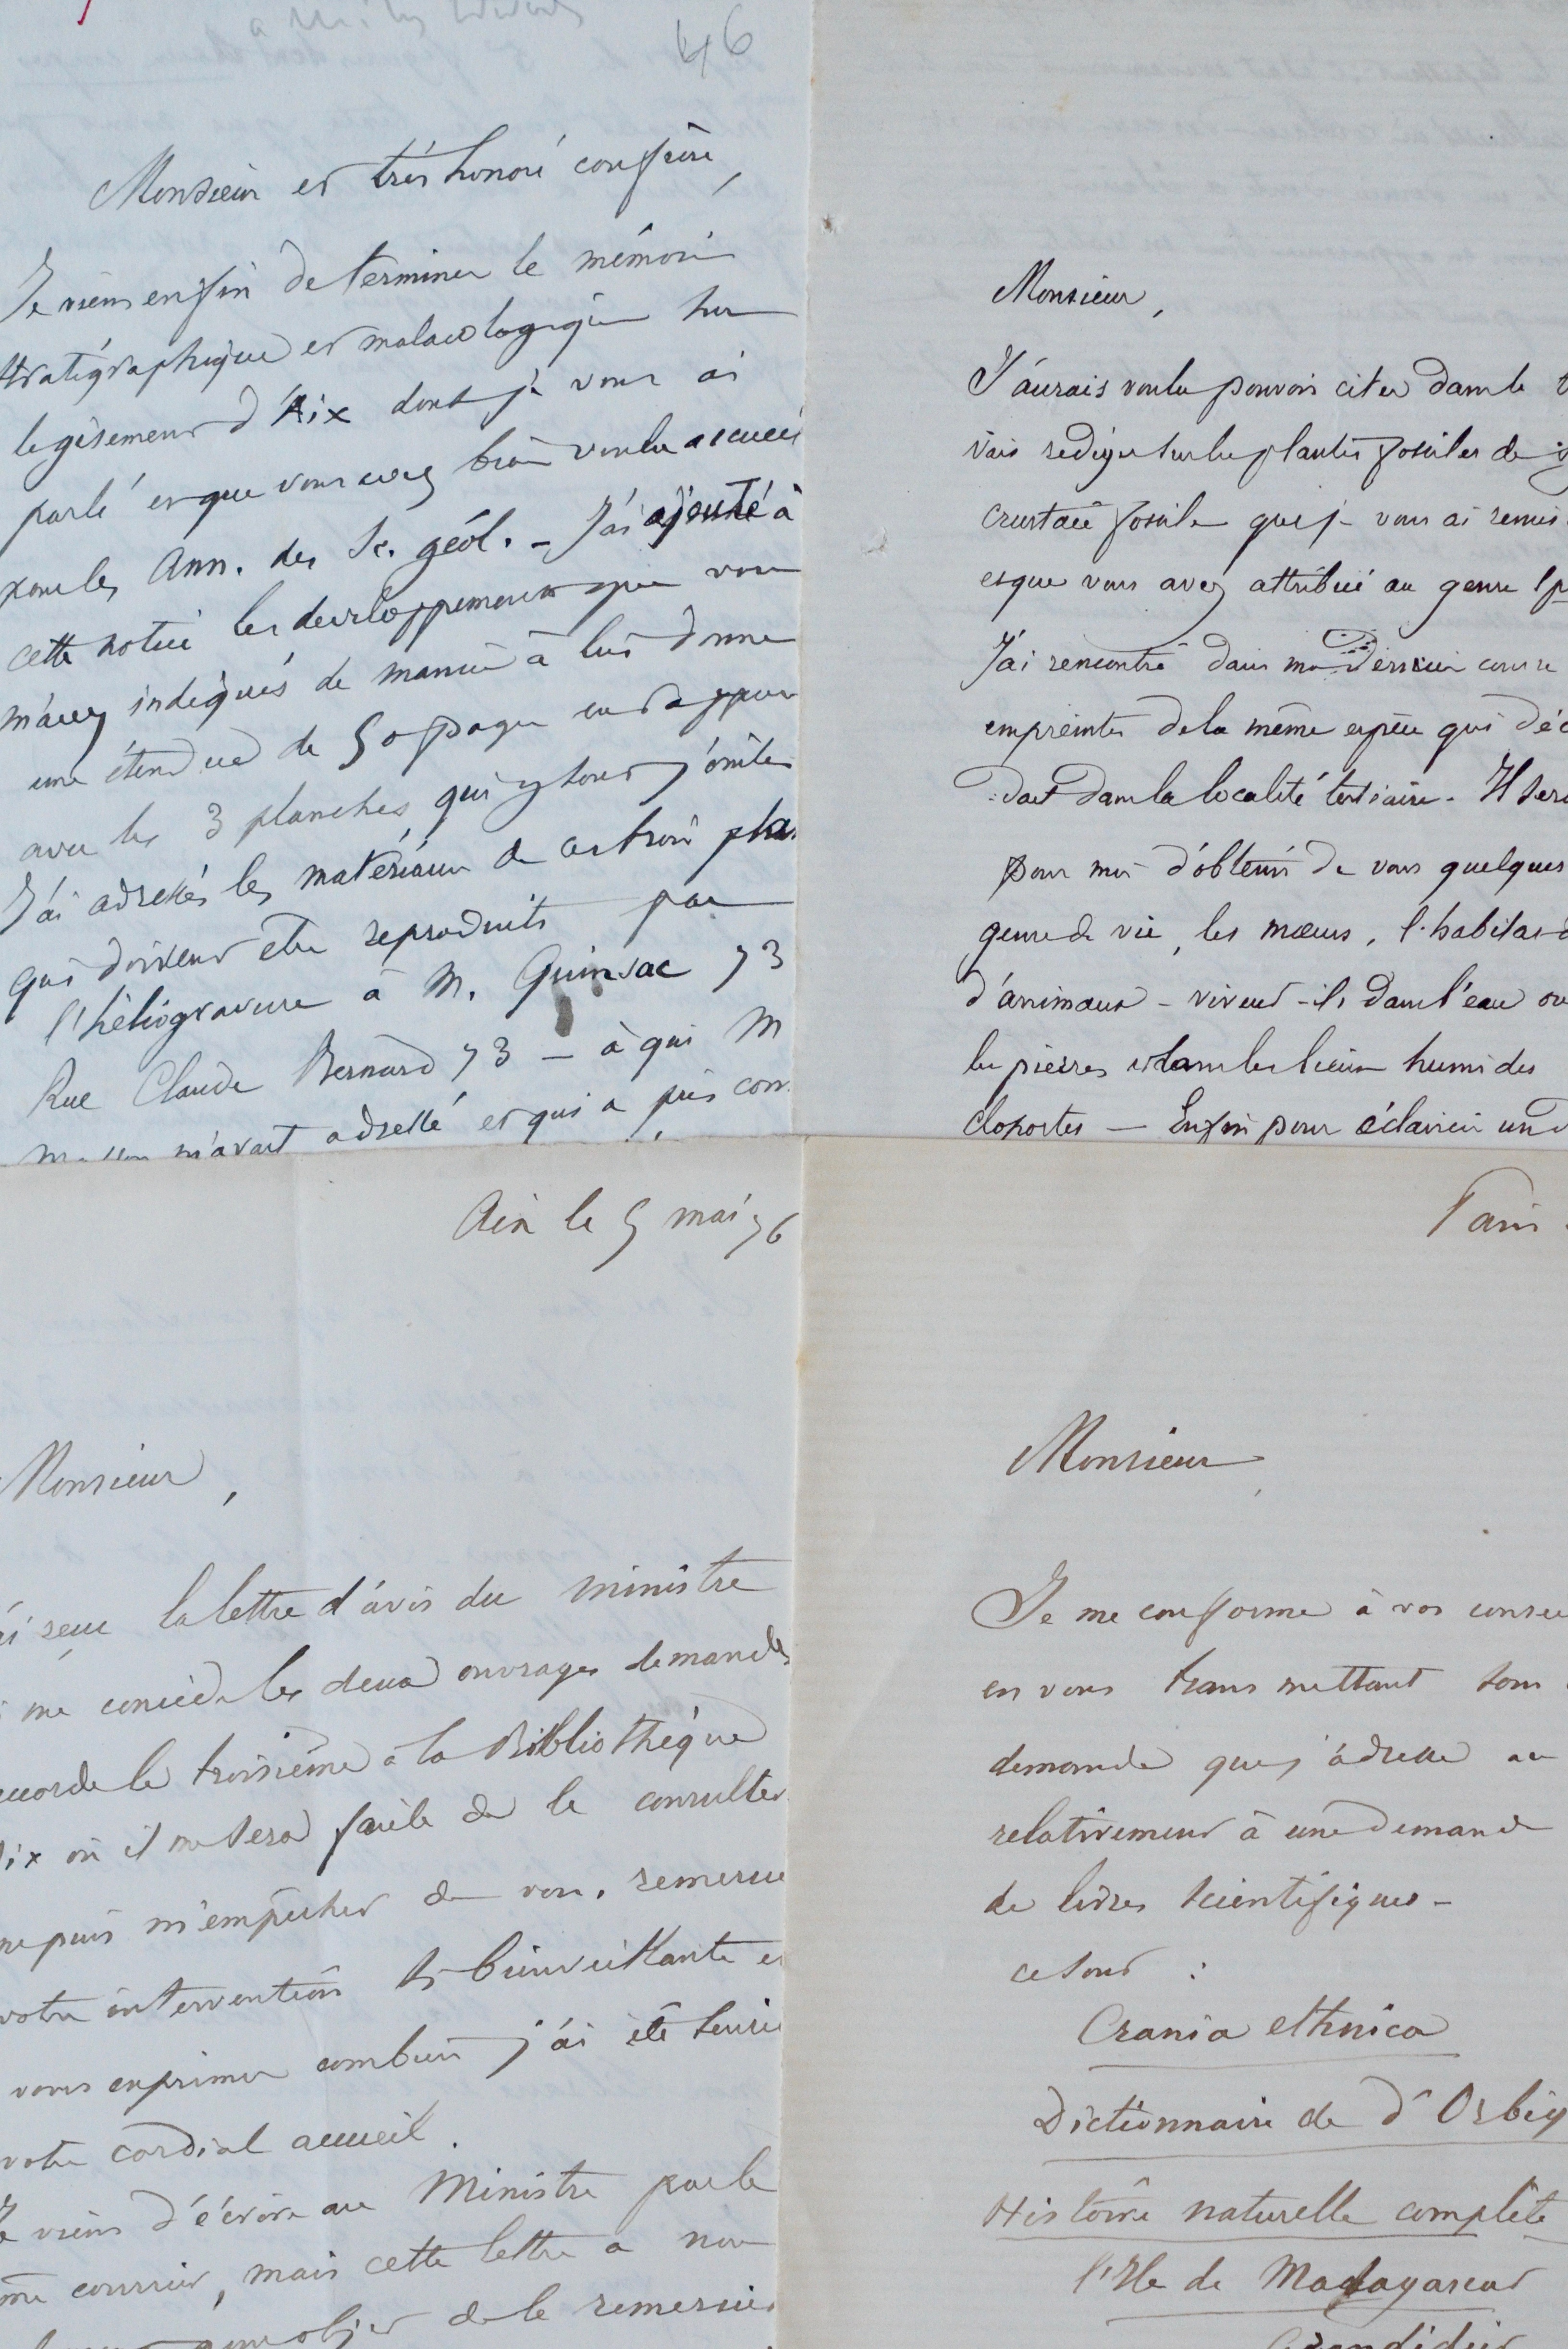 46
Monsieur et très honoré confrère,
Je viens enfin de terminer le mémoire
stratigraphique et malacologique sur
le gisement d'Aix dont je vous ai
parlé et que vous avez bien voulu
pour les Ann. des Sc. géol. - J'ai ajouté à
cette notice les developpements que vous
m'avez indiqués de manière à lui donner
une étendue de 50 pages en rapport
avec les 3 planches qui y sont jointes
J'ai adressés les matériaux de ces trois
qui doivent être reproduits par
l'héliogravure à M. Quinsac 73
Rue Claude Bernard 73 - à qui M
m'avait adressé et qui a pris
Monsieur,
J'aurais voulu pouvoir citer dans le
vais rediger sur les plantes fossiles de
crustacé fossile que je vous ai remis
et que vous avez attribué au genre
J'ai rencontré dans ma dernière course
empreintes de la même espèce qui
dans la localité tertiaire. Il
pour moi d'obtenir de vous quelques
genre de vie, les mœurs, l'habitat
d'animaux - vivent-ils dans l'eau ou
les pierres et dans les lieux humides
cloportes — Enfin pour éclaircir un
Aix le 5 mai 76
Monsieur,
reçu la lettre d'avis du ministre
me concède les deux ouvrages demandés
le troisième à la Bibliothèque
où il me sera facile de le consulter
ne puis m'empêcher de vous remercier
votre intervention si bienveillante et
vous exprimer combien j'ai été
votre cordial accueil.
Je viens d'écrire au Ministre par le
courrier, mais cette lettre a
de le remercier
Paris
Monsieur
Je me conforme à vos
en vous transmettant sous
demande que j'adresse au
relativement à une demande
de livres scientifiques -
ce sont :
Crania ethnica
Dictionnaire de d'Orbig
Histoire naturelle complète
l'Ile de Madagascar